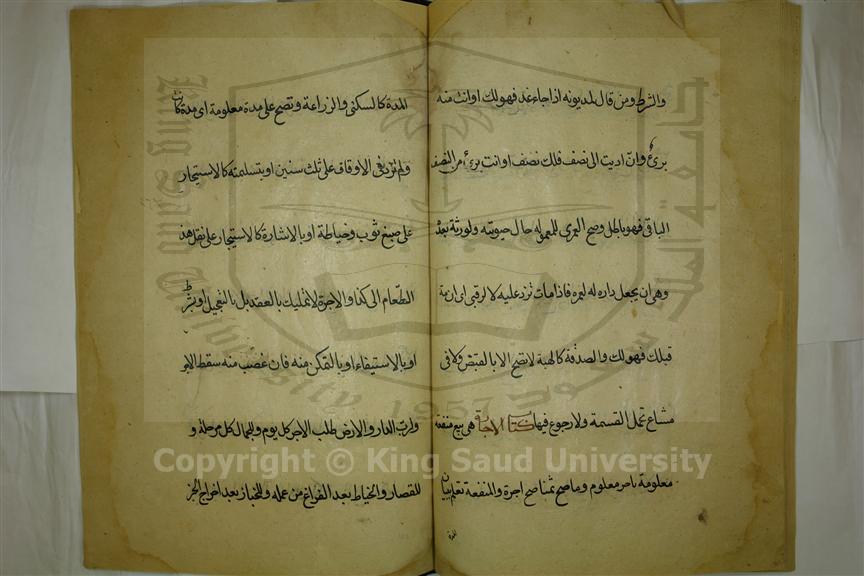 والشرط ومن قال لمديونه اذا جاء غد فهو لك او انت منه
برئ وان اديت الى نصف فلك نصف او انت برئ من النصف
الباقى فهو باطل وصح العمرى للمعمر له حال حيوته ولورثته بعده
وهى ان يجعل داره له عمره فاذا مات ترد عليه لا الرقبى اى ان مت
قبلك فهو لك والصدقة كالهبة لا تصح الا بالقبض ولا فى
مشاع تحمل القسمة ولا رجوع فيها كتاب الاجارة هى بيع منفعة
معلومة باجر معلوم وما صح ثمنا صح اجرة والمنفعة تعلم ببيان
المدة
المدة كالسكنى والزراعة وتصح على مدة معلومة اى مدة كانت
ولم تزد فى الاوقاف على ثلث سنين او بتسليمته كالاستيجار
على صبغ ثوب وخياطة او بالاشارة كالاستيجار على نقل هذا
الطعام الى كذا والاجرة لا تملك بالعقد بل بالتعجيل او بشرطه
او بالاستيفاء او بالتمكن منه فان غصب منه سقط الاجر
ولرب الدار والارض طلب الاجر كل يوم وللجمال كل مرحلة و
للقصار والخياط بعد الفراغ من عمله وللخباز بعد اخراج الخبز
Copyright © King Saud University
جامعة الملك سعود
King Saud University
1957